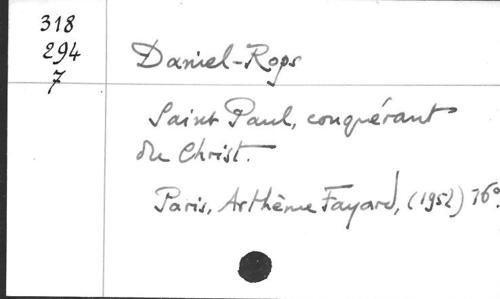 318
294
7
Daniel-Rops
Saint Paul, conquérant
du Christ.
Paris, Arthème Fayard, (1952) 16°.